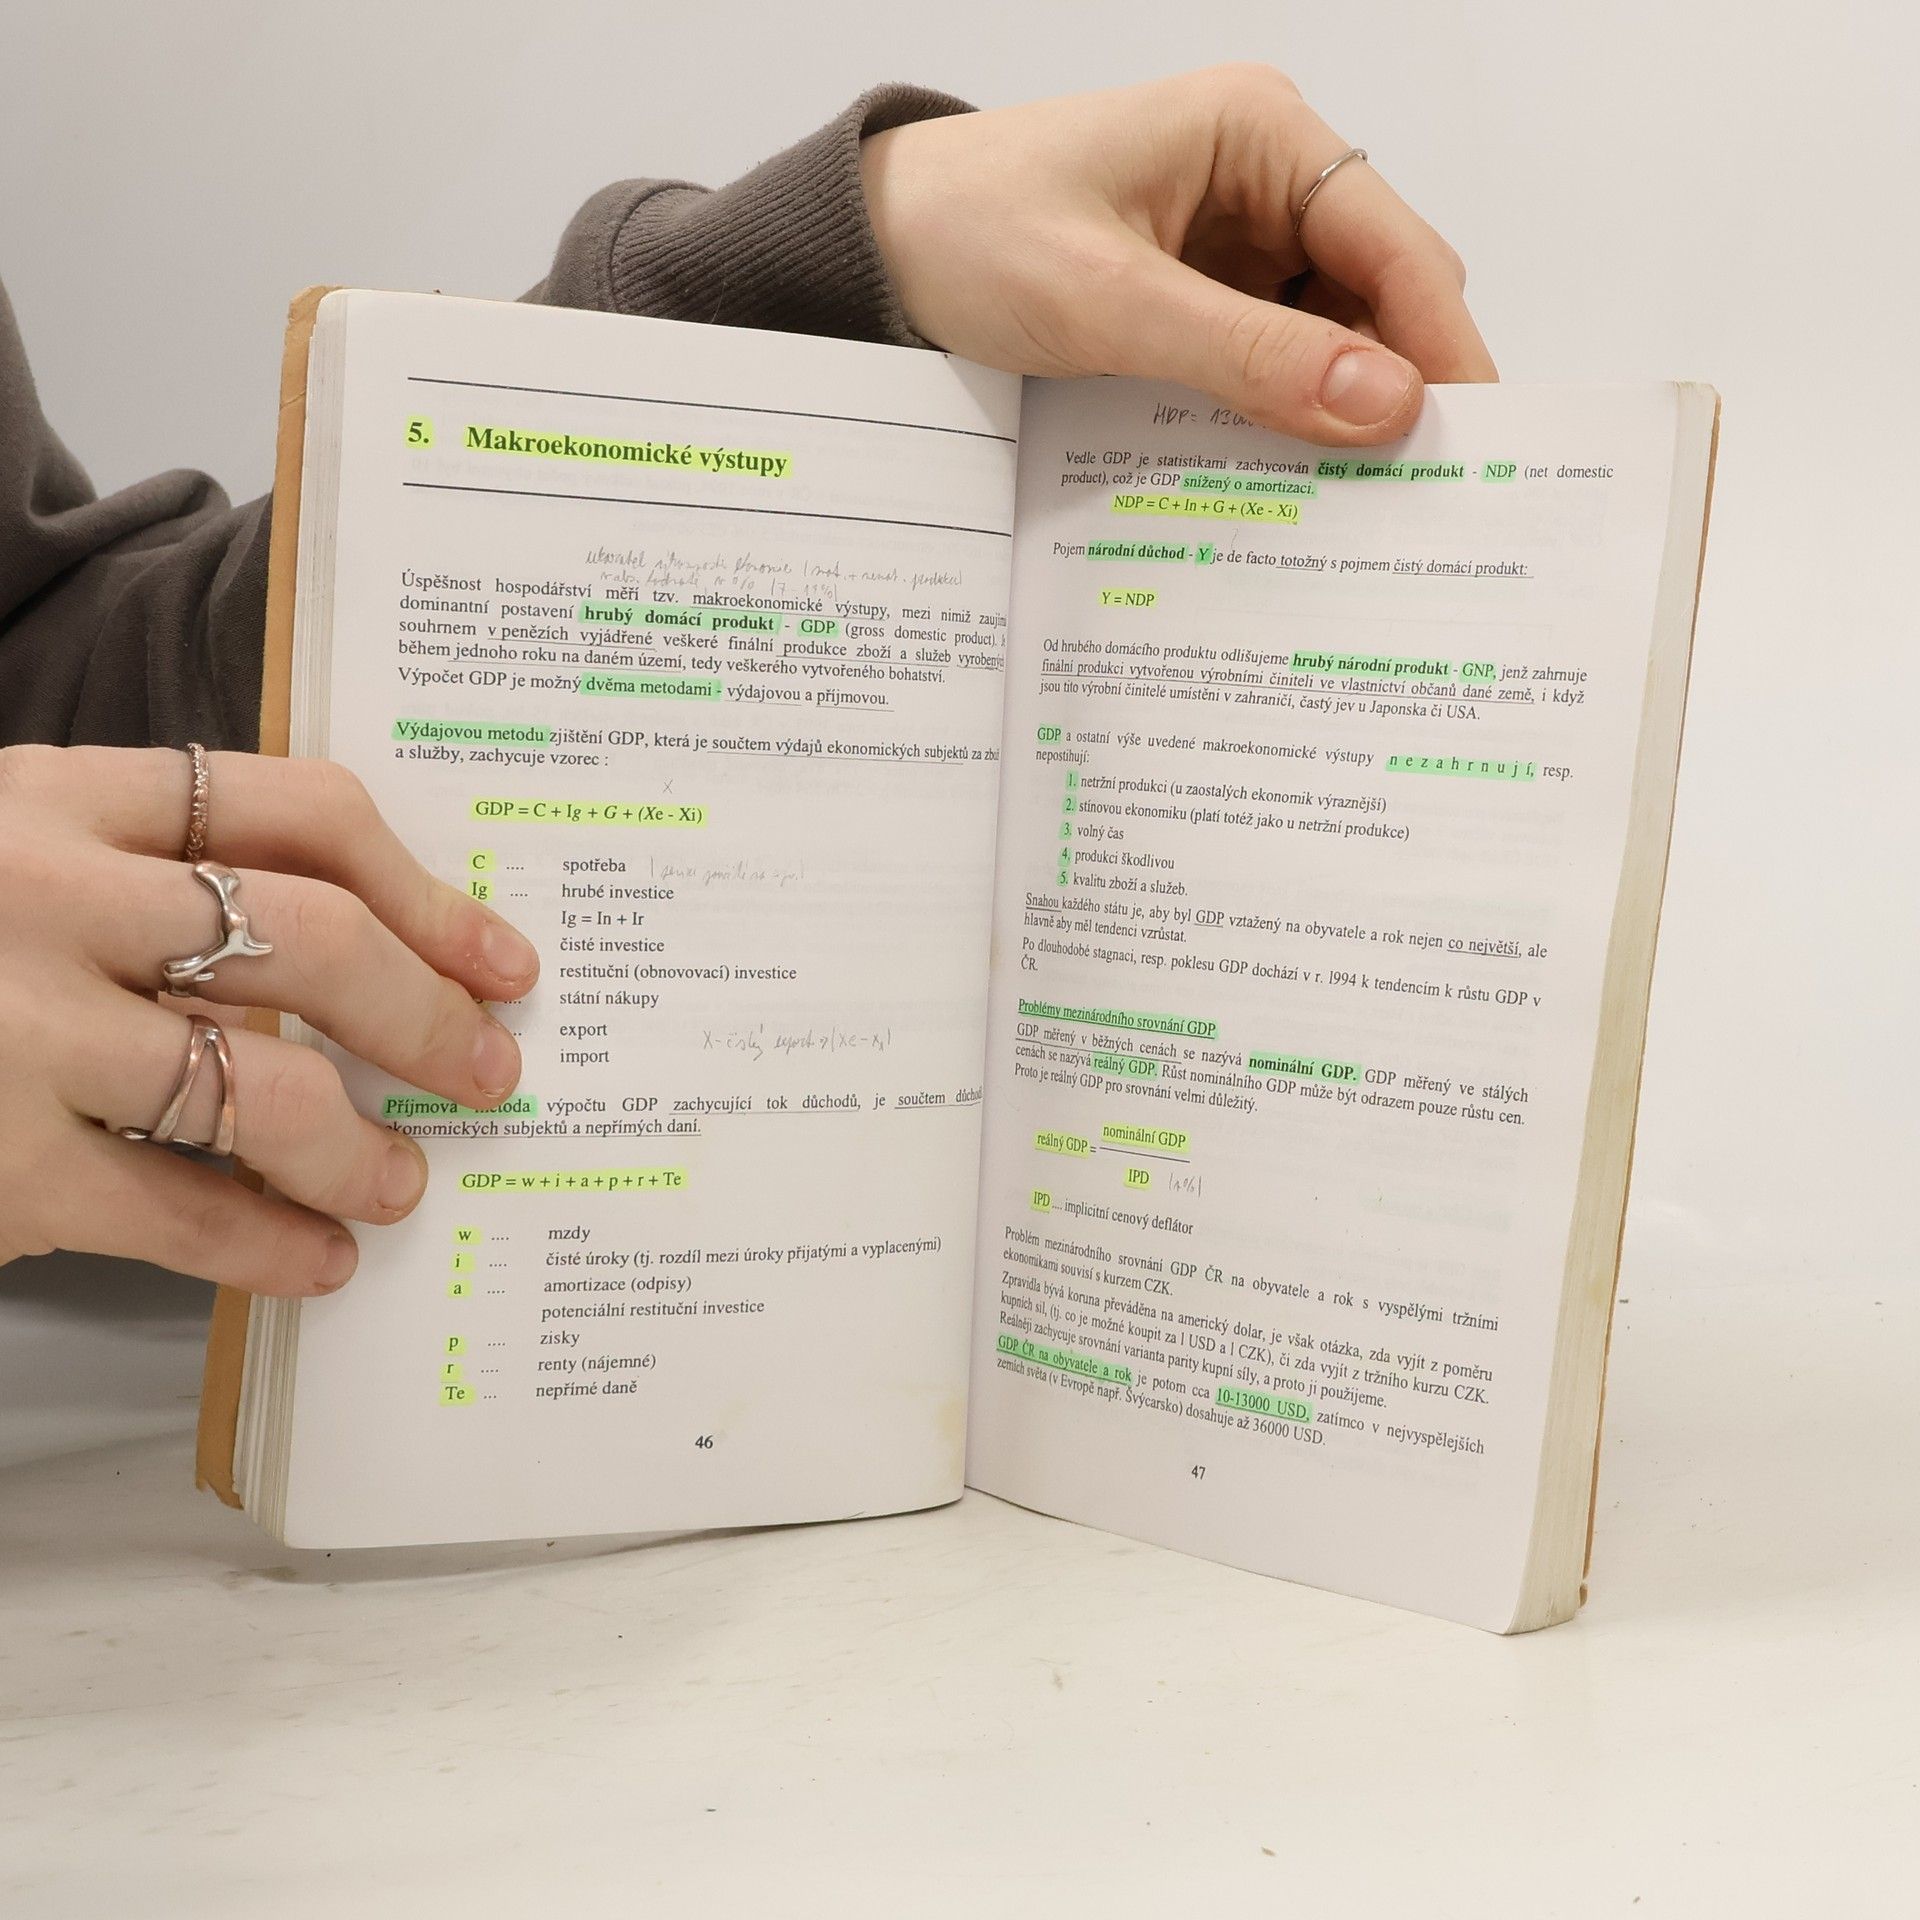 5. Makroekonomické výstupy
Úspěšnost hospodářství měří tzv. makroekonomické výstupy, mezi nimiž
dominantní postavení hrubý domácí produkt - GDP (gross domestic product).
souhrnem v penězích vyjádřené veškeré finální produkce zboží a služeb
během jednoho roku na daném území, tedy veškerého vytvořeného bohatství.
Výpočet GDP je možný dvěma metodami - výdajovou a příjmovou.
Výdajovou metodu zjištění GDP, která je součtem výdajů ekonomických subjektů za
a služby, zachycuje vzorec :
X
GDP = C + Ig + G + (Xe - Xi)
C .... spotřeba
Ig .... hrubé investice
Ig = In + Ir
čisté investice
restituční (obnovovací) investice
státní nákupy
export
import
Příjmová výpočtu GDP zachycující tok důchodů, je součtem
ekonomických subjektů a nepřímých daní.
GDP = w + i + a + p + r + Te
w .... mzdy
i .... čisté úroky (tj. rozdíl mezi úroky přijatými a vyplacenými)
a .... amortizace (odpisy)
potenciální restituční investice
p .... zisky
r .... renty (nájemné)
Te ... nepřímé daně
46
HDP =
Vedle GDP je statistikami zachycován čistý domácí produkt - NDP (net domestic
product), což je GDP snížený o amortizaci.
NDP = C + In + G + (Xe - Xi)
Pojem národní důchod - Y je de facto totožný s pojmem čistý domácí produkt:
Y = NDP
Od hrubého domácího produktu odlišujeme hrubý národní produkt - GNP, jenž zahrnuje
finální produkci vytvořenou výrobními činiteli ve vlastnictví občanů dané země, i když
jsou tito výrobní činitelé umístěni v zahraničí, častý jev u Japonska či USA.
GDP a ostatní výše uvedené makroekonomické výstupy nezahrnují, resp.
nepostihují:
1. netržní produkci (u zaostalých ekonomik výraznější)
2. stínovou ekonomiku (platí totéž jako u netržní produkce)
3. volný čas
4. produkci škodlivou
5. kvalitu zboží a služeb.
Snahou každého státu je, aby byl GDP vztažený na obyvatele a rok nejen co největší, ale
hlavně aby měl tendenci vzrůstat.
Po dlouhodobé stagnaci, resp. poklesu GDP dochází v r. 1994 k tendencím k růstu GDP v
ČR.
Problémy mezinárodního srovnání GDP
GDP měřený v běžných cenách se nazývá nominální GDP. GDP měřený ve stálých
cenách se nazývá reálný GDP. Růst nominálního GDP může být odrazem pouze růstu cen.
Proto je reálný GDP pro srovnání velmi důležitý.
nominální GDP
reálný GDP =
IPD
IPD .... implicitní cenový deflátor
Problém mezinárodního srovnání GDP ČR na obyvatele a rok s vyspělými tržními
ekonomikami souvisí s kurzem CZK.
Zpravidla bývá koruna převáděna na americký dolar, je však otázka, zda vyjít z poměru
kupních sil, (tj. co je možné koupit za 1 USD a 1 CZK), či zda vyjít z tržního kurzu CZK.
Reálněji zachycuje srovnání varianta parity kupní síly, a proto ji použijeme.
GDP ČR na obyvatele a rok je potom cca 10-13000 USD, zatímco v nejvyspělejších
zemích světa (v Evropě např. Švýcarsko) dosahuje až 36000 USD.
47